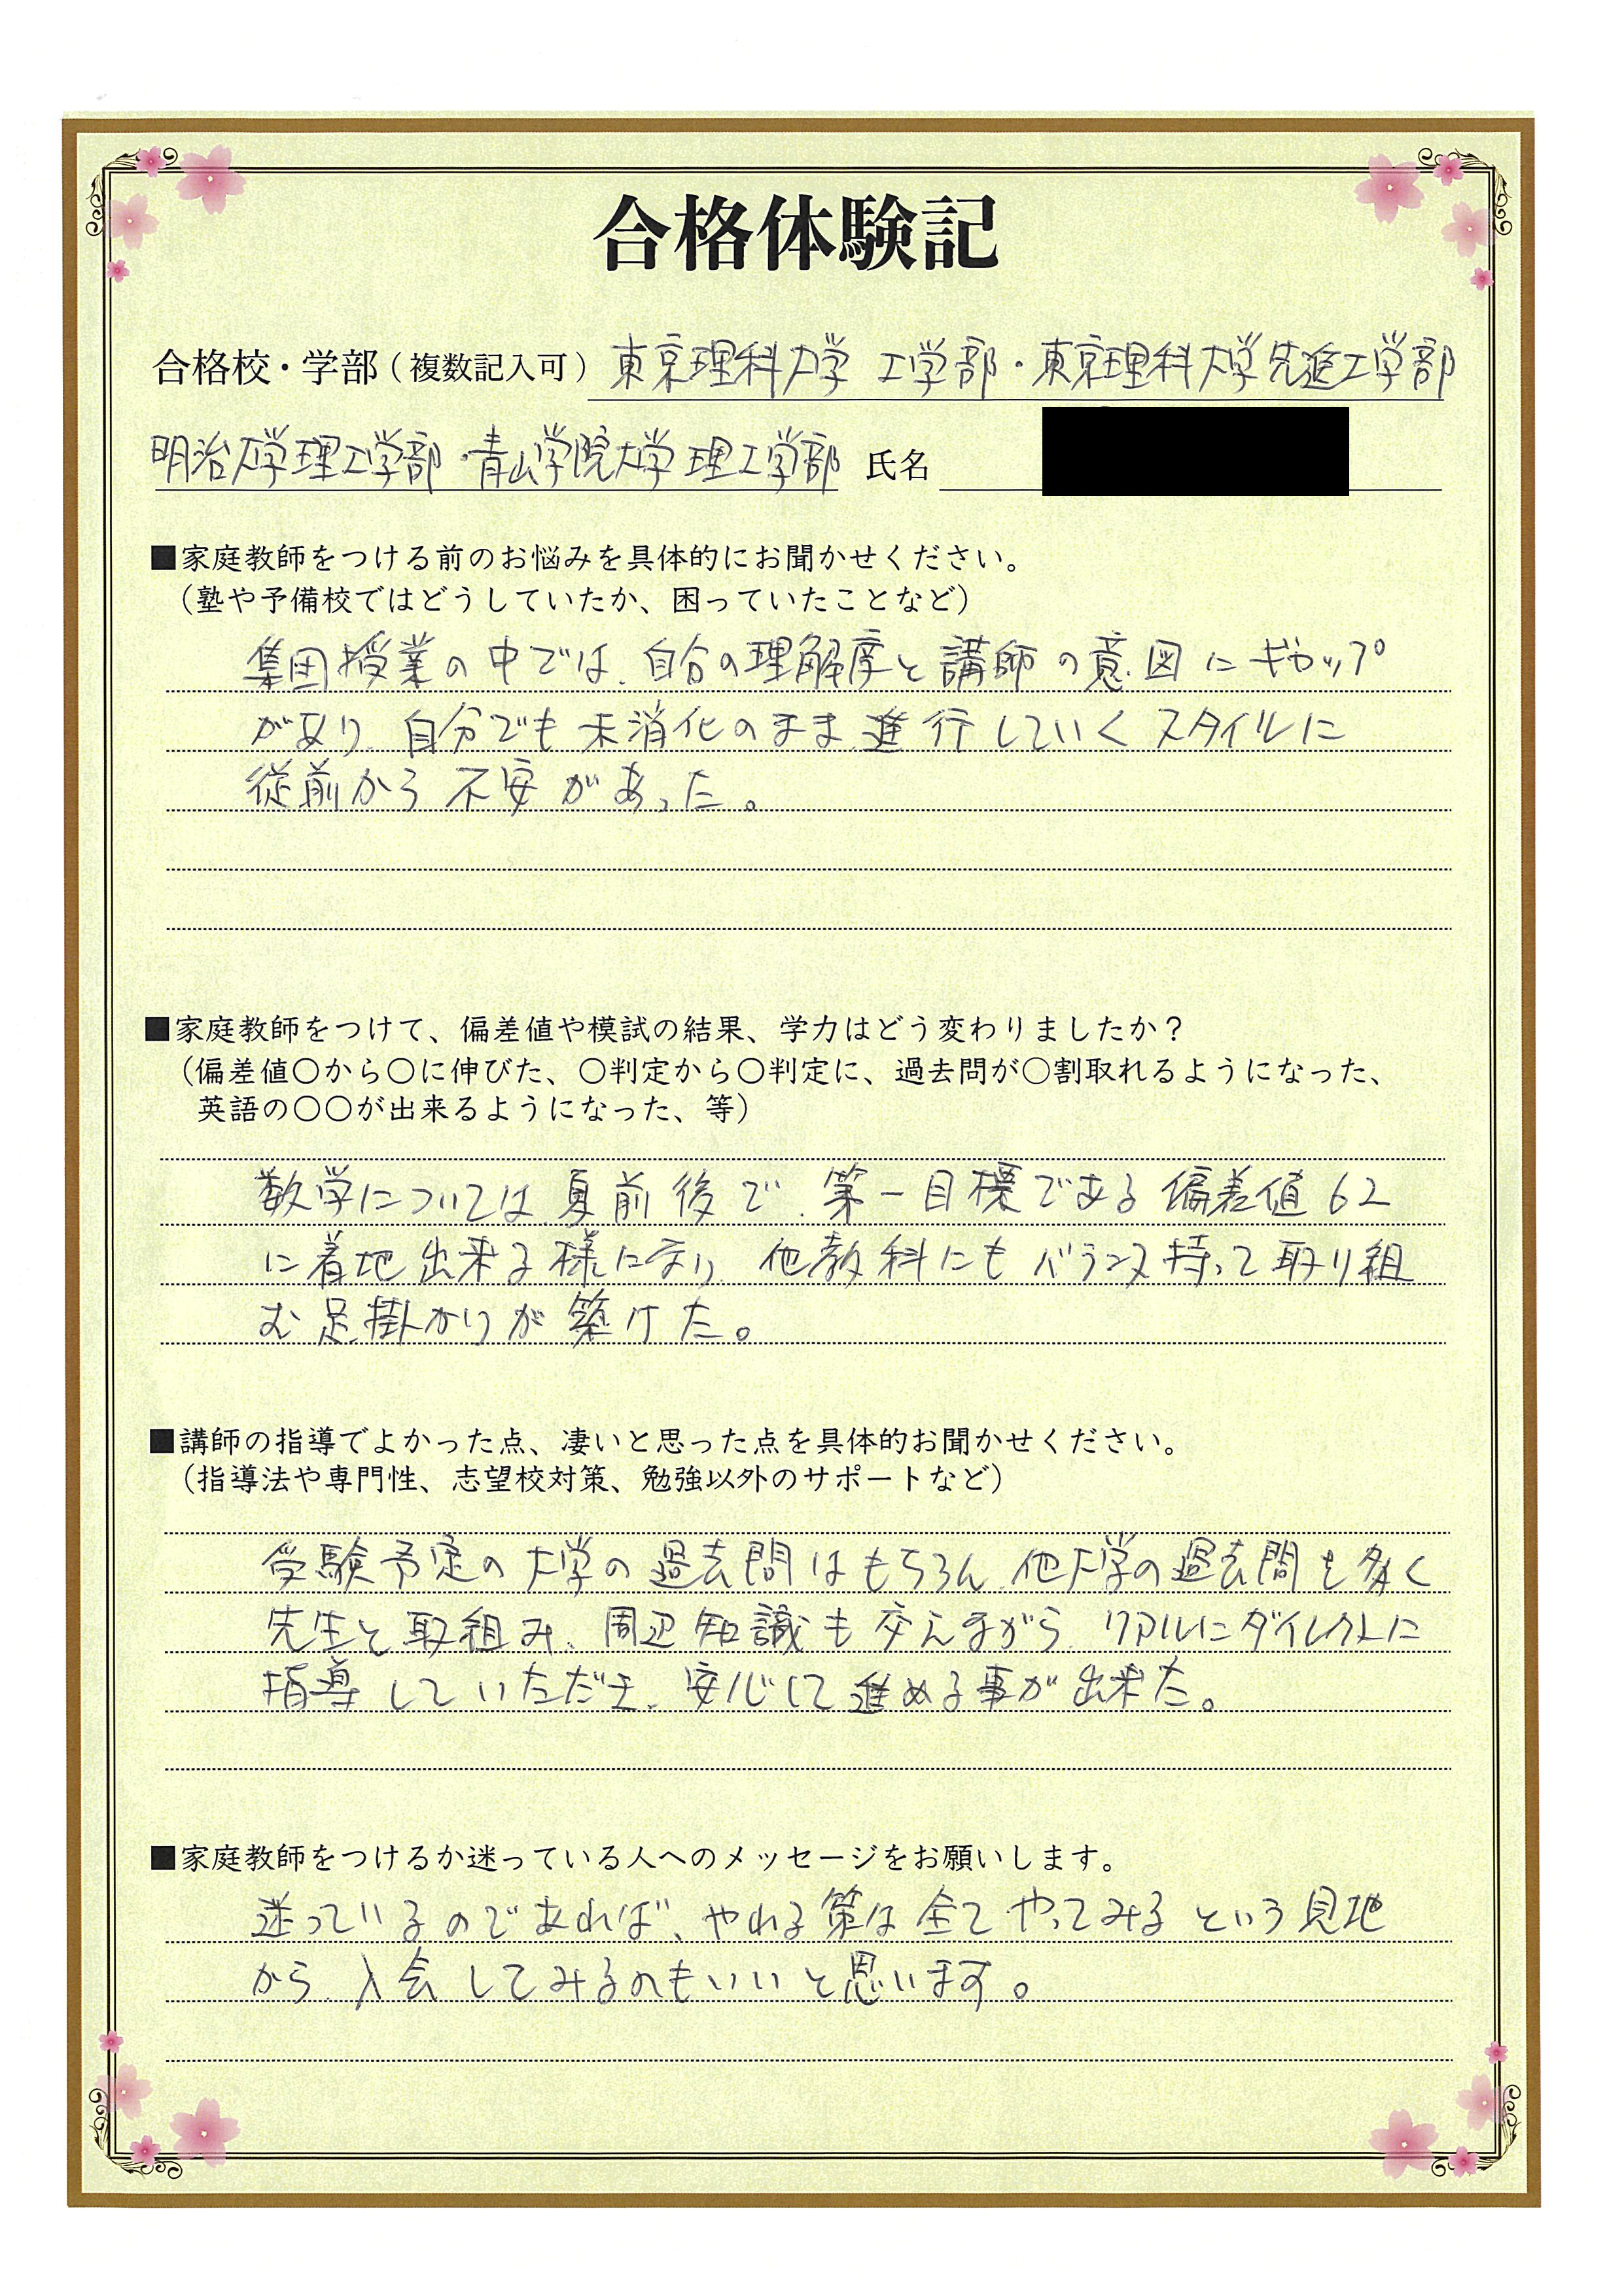 合格体験記
合格校・学部（複数記入可） 東京理科大学 工学部・東京理科大学先進工学部
明治大学理工学部・青山学院大学理工学部 氏名
■家庭教師をつける前のお悩みを具体的にお聞かせください。
（塾や予備校ではどうしていたか、困っていたことなど）
集団授業の中では、自分の理解度と講師の意図にギャップ
があり、自分でも未消化のまま進行していくスタイルに
従前から不安があった。
■家庭教師をつけて、偏差値や模試の結果、学力はどう変わりましたか？
（偏差値〇から〇に伸びた、〇判定から〇判定に、過去問が〇割取れるようになった、
英語の〇〇が出来るようになった、等）
数学については、夏前後で、第一目標である偏差値62
に着地出来る様になり、他教科にもバランス持って取り組
む足掛かりが築けた。
■講師の指導でよかった点、凄いと思った点を具体的お聞かせください。
（指導法や専門性、志望校対策、勉強以外のサポートなど）
受験予定の大学の過去問はもちろん、他大学の過去問も多く
先生と取組み、周辺知識も交えながら、リアルにダイレクトに
指導していただき、安心して進める事が出来た。
■家庭教師をつけるか迷っている人へのメッセージをお願いします。
迷っているのであれば、やれる策は全てやってみるという見地
から、入会してみるのもいいと思います。